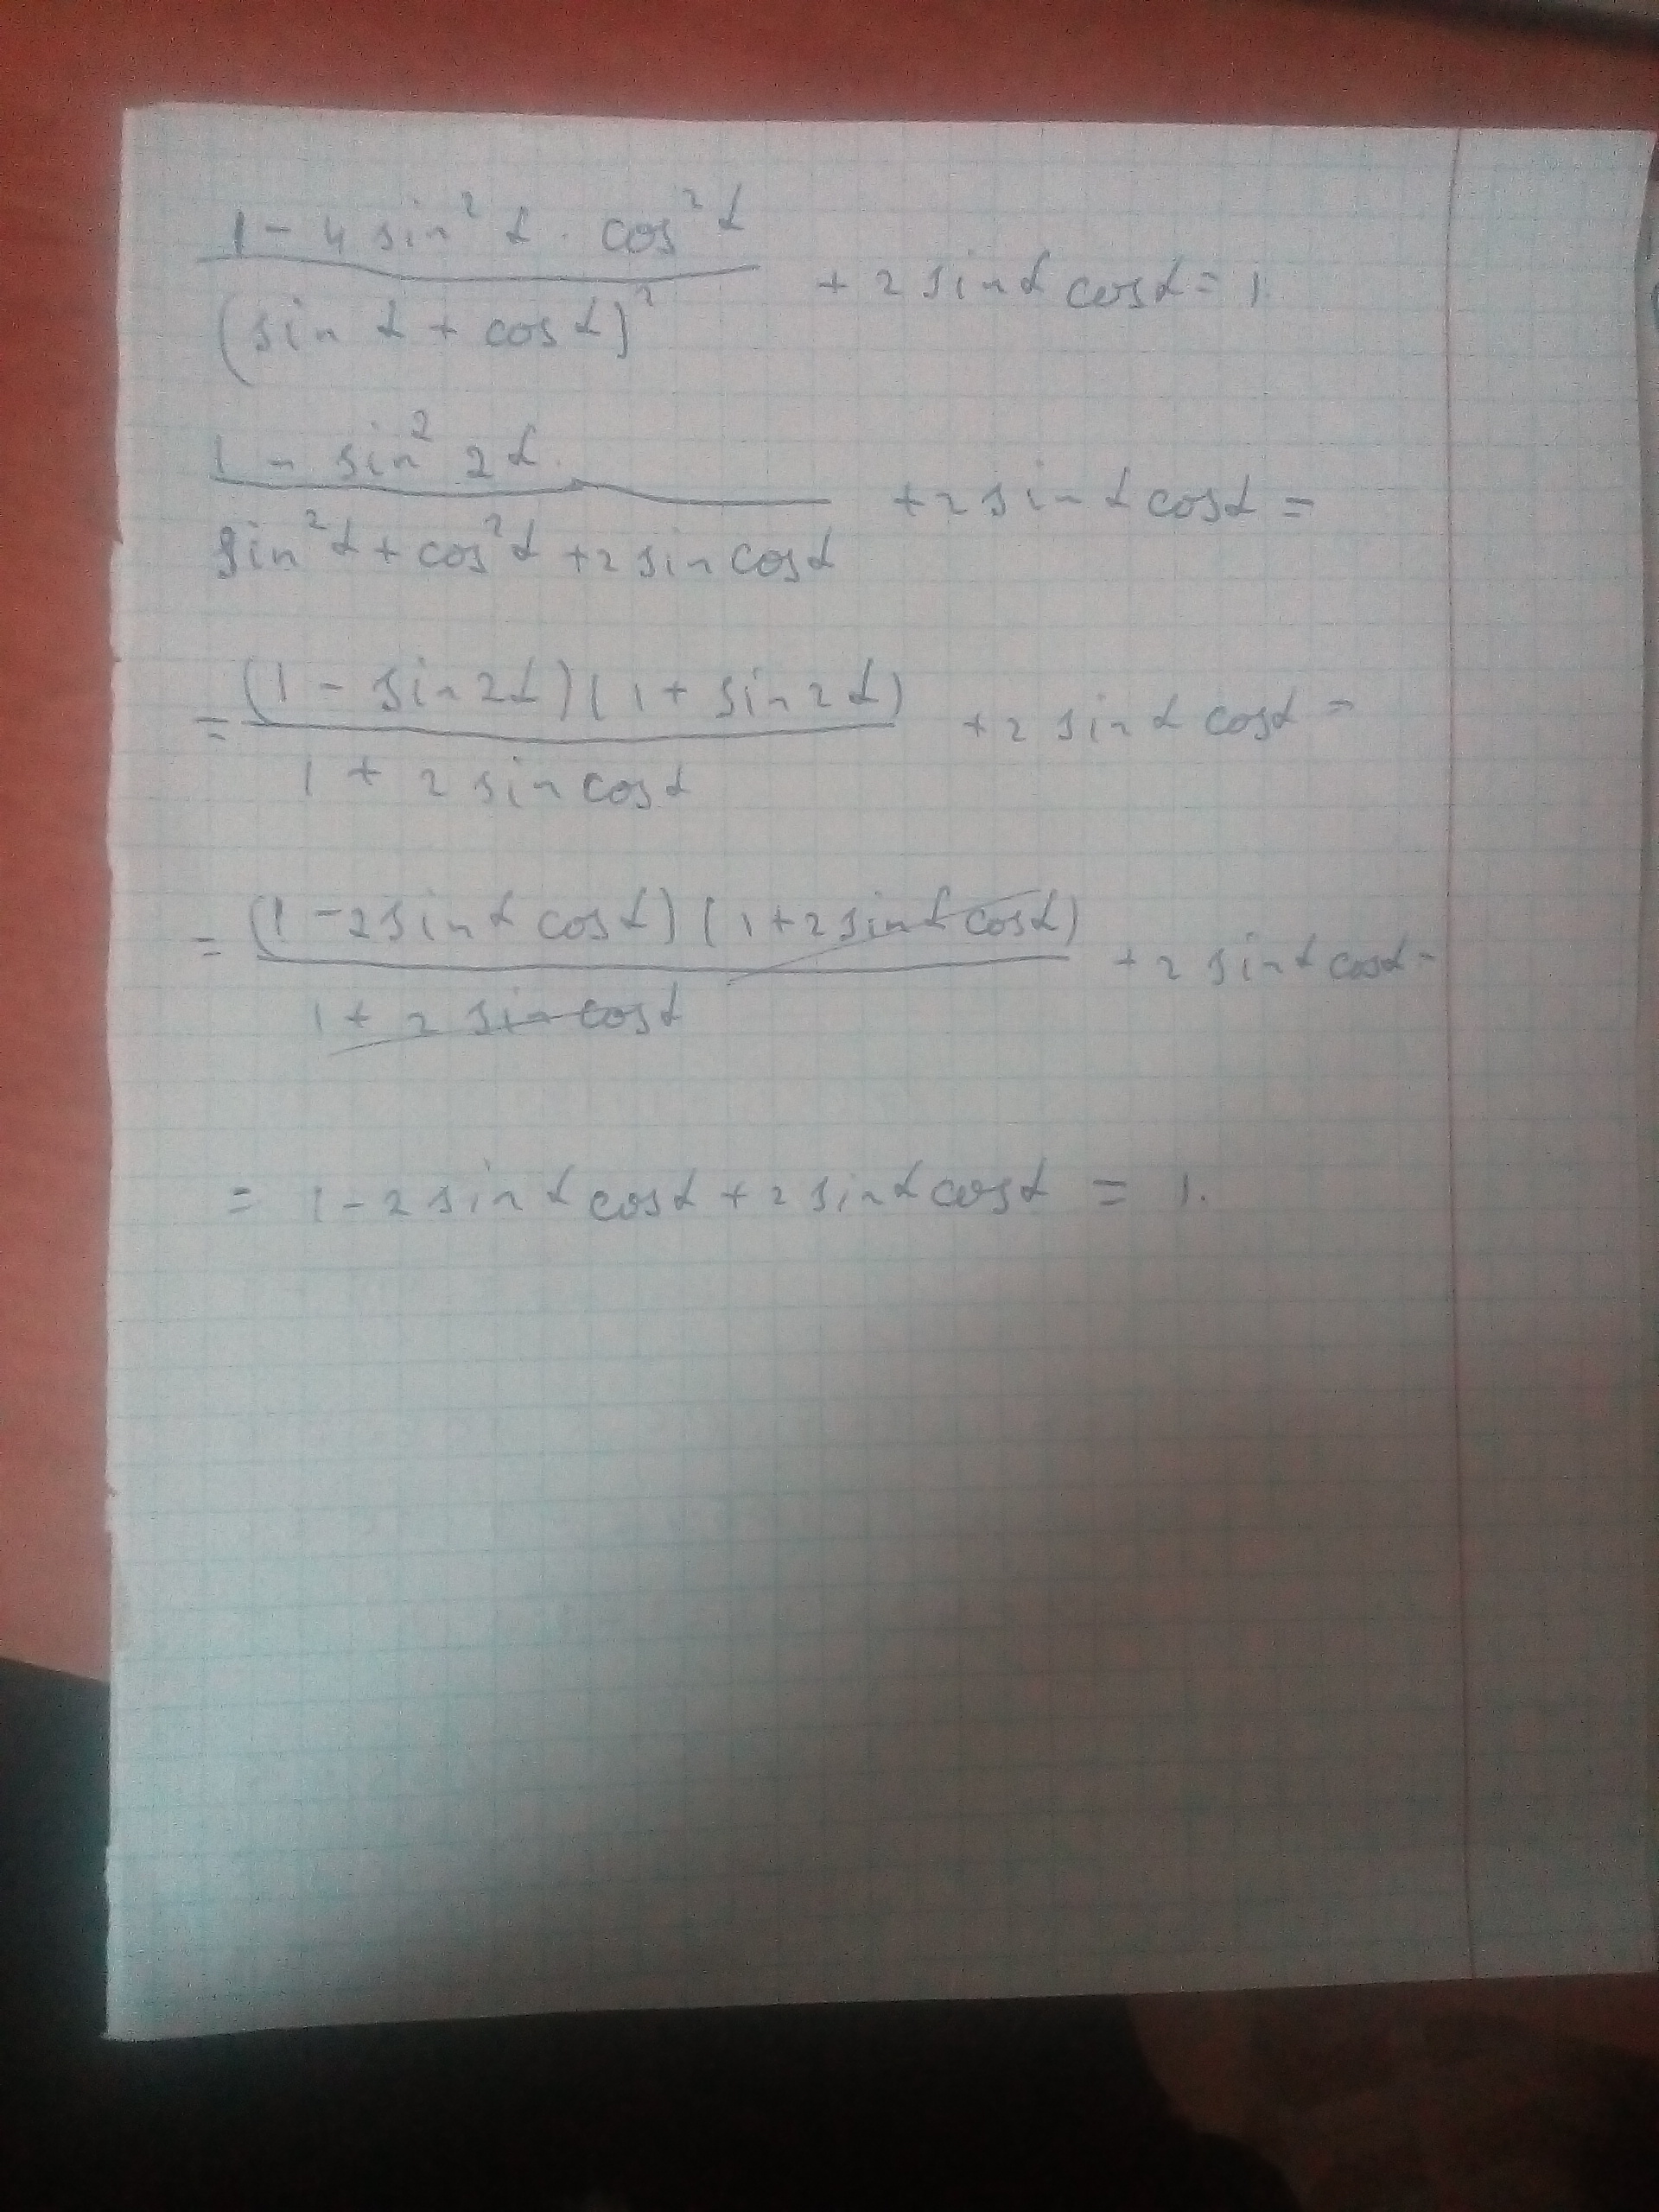 1 - 4 sin² α · cos² α
(sin α + cos α)² + 2 sin α cos α = 1.
1 - sin² 2α
sin² α + cos² α + 2 sin cos α + 2 sin α cos α =
= (1 - sin 2α)(1 + sin 2α)
1 + 2 sin cos α + 2 sin α cos α =
= (1 - 2 sin α cos α)(1 + 2 sin α cos α)
1 + 2 sin cos α + 2 sin α cos α =
= 1 - 2 sin α cos α + 2 sin α cos α = 1.